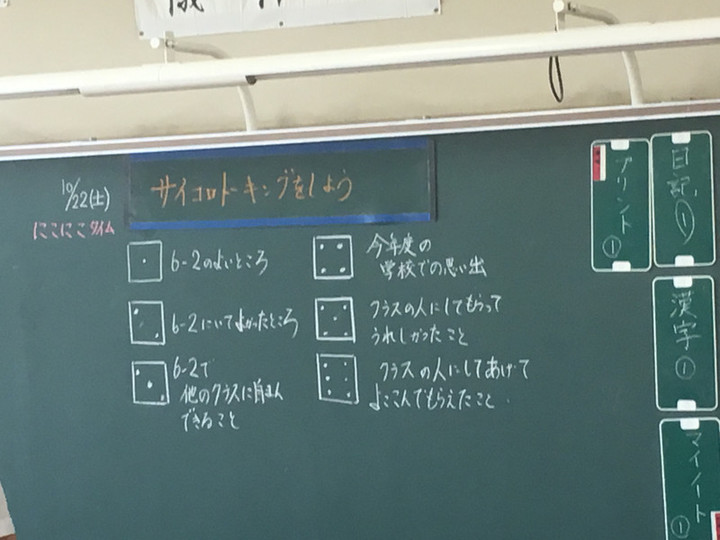 10/22(土)
にこにこタイム
サイコロトーキングをしよう
6-2のよいところ
6-2にいてよかったところ
6-2で
他のクラスに自まん
できること
今年度の
学校での思い出
クラスの人にしてもらって
うれしかったこと
クラスの人にしてあげて
よろこんでもらえたこと.
日記①
プリント①
漢字①
マイノート①